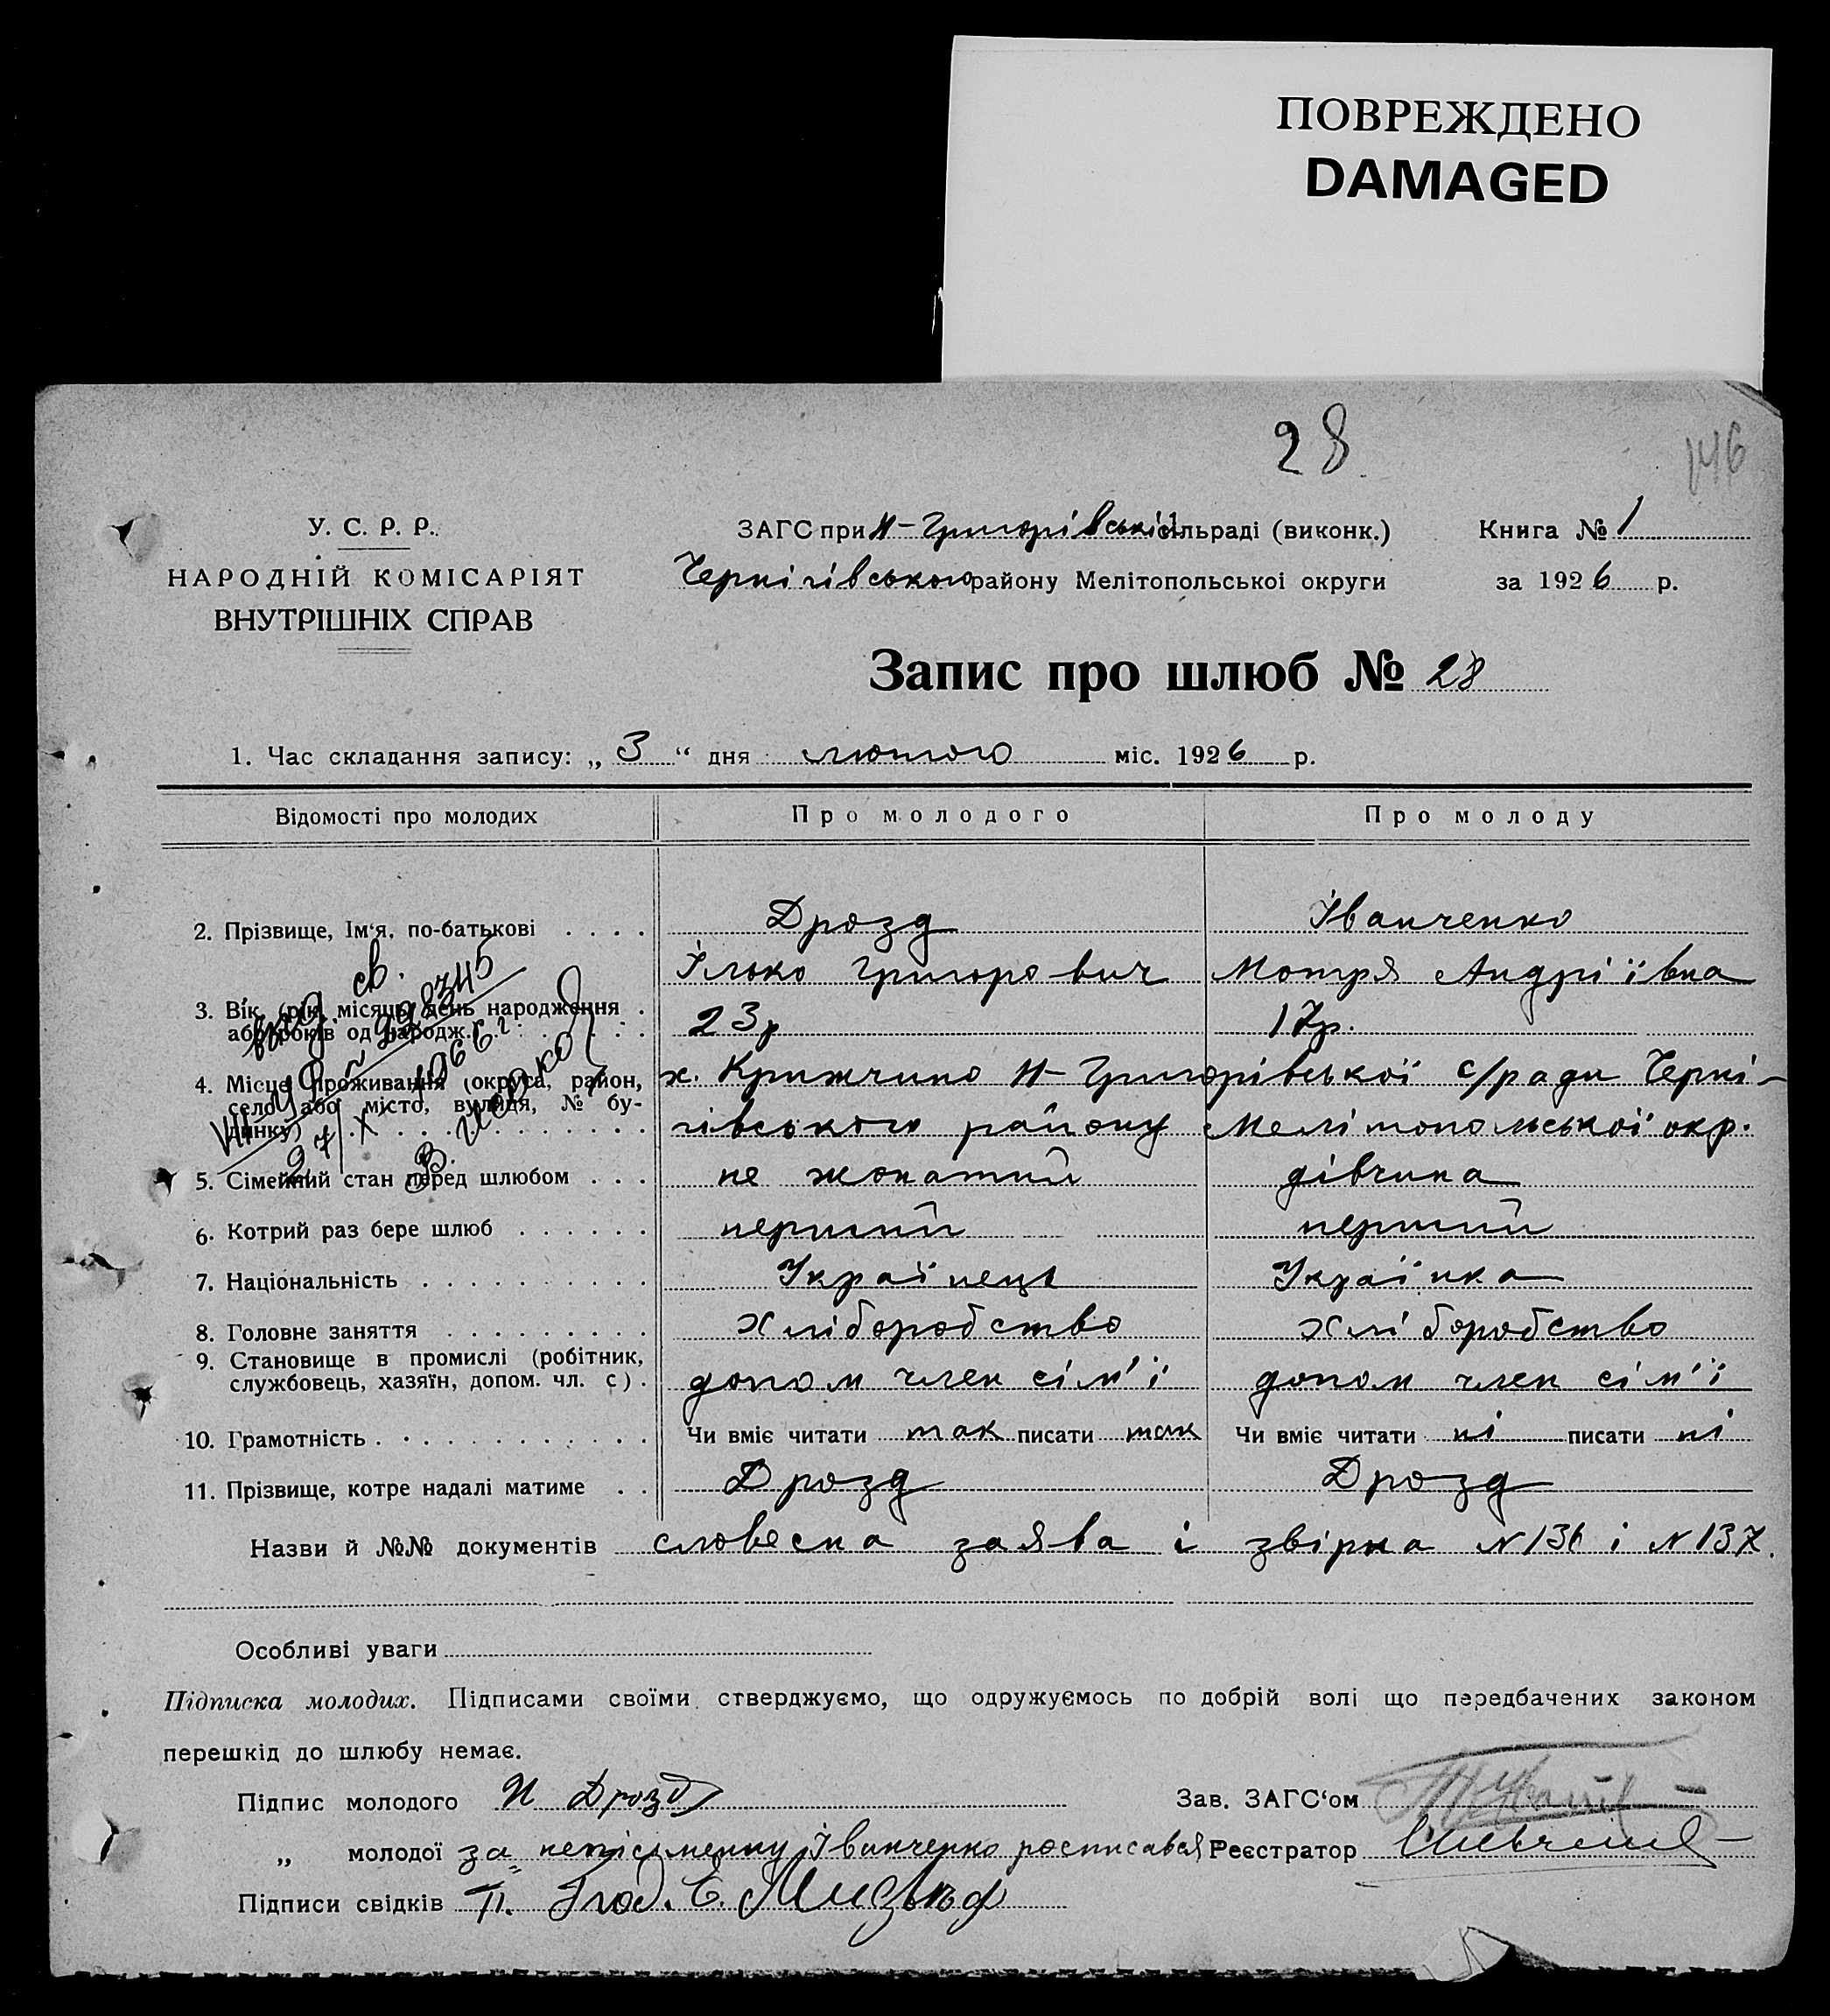 ПОВРЕЖДЕНО
DAMAGED
28
146
У. С. Р. Р.
НАРОДНІЙ КОМІСАРІЯТ
ВНУТРІШНІХ СПРАВ
ЗАГС при Н-Григорівській сільраді (виконк.)
Чернігівського району Мелітопольськоі округи
Книга № 1
за 1926 р.
Запис про шлюб № 28
1. Час складання запису: „ 3 “ дня лютого міс. 1926 р.
Відомості про молодих Про молодого Про молоду
2. Прізвище, Ім‘я, по-батькові . . . . Дрозд Іванченко
Ілько Григорович Мотря Андріївна
3. Вік, (рік, місяць, день народження . 23 р 17 р.
або років од народж.) . . . . . .
4. Місце проживання (округа, район, х. Крижчино Н-Григорівської с/ради Черні-
село або місто, вулиця, № бу-
динку) . . . . . . . . . . гівського району Мелітопольської окр.
5. Сімейний стан перед шлюбом . . . не жонатий дівчина
6. Котрий раз бере шлюб . . . . . . перший перший
7. Національність . . . . . . . . . . Українець Українка
8. Головне заняття . . . . . . . . . Хліборобство Хліборобство
9. Становище в промислі (робітник,
службовець, хазяїн, допом. чл. с) . допом член сім'ї допом член сім'ї
10. Грамотність . . . . . . . . . . . Чи вміє читати так писати так Чи вміє читати ні писати ні
11. Прізвище, котре надалі матиме . . Дрозд Дрозд
выд. св.
VII 998345
27/X 1966 г.
Назви й №№ документів словесна заява і звірка N 136 і N 137.
Особливі уваги
Підписка молодих. Підписами своїми стверджуємо, що одружуємось по добрій волі що передбачених законом
перешкід до шлюбу немає.
Підпис молодого И Дрозд Зав. ЗАГС‘ом
„ молодої за непісьменну Іванченко росписався Реєстратор
Підписи свідків П.